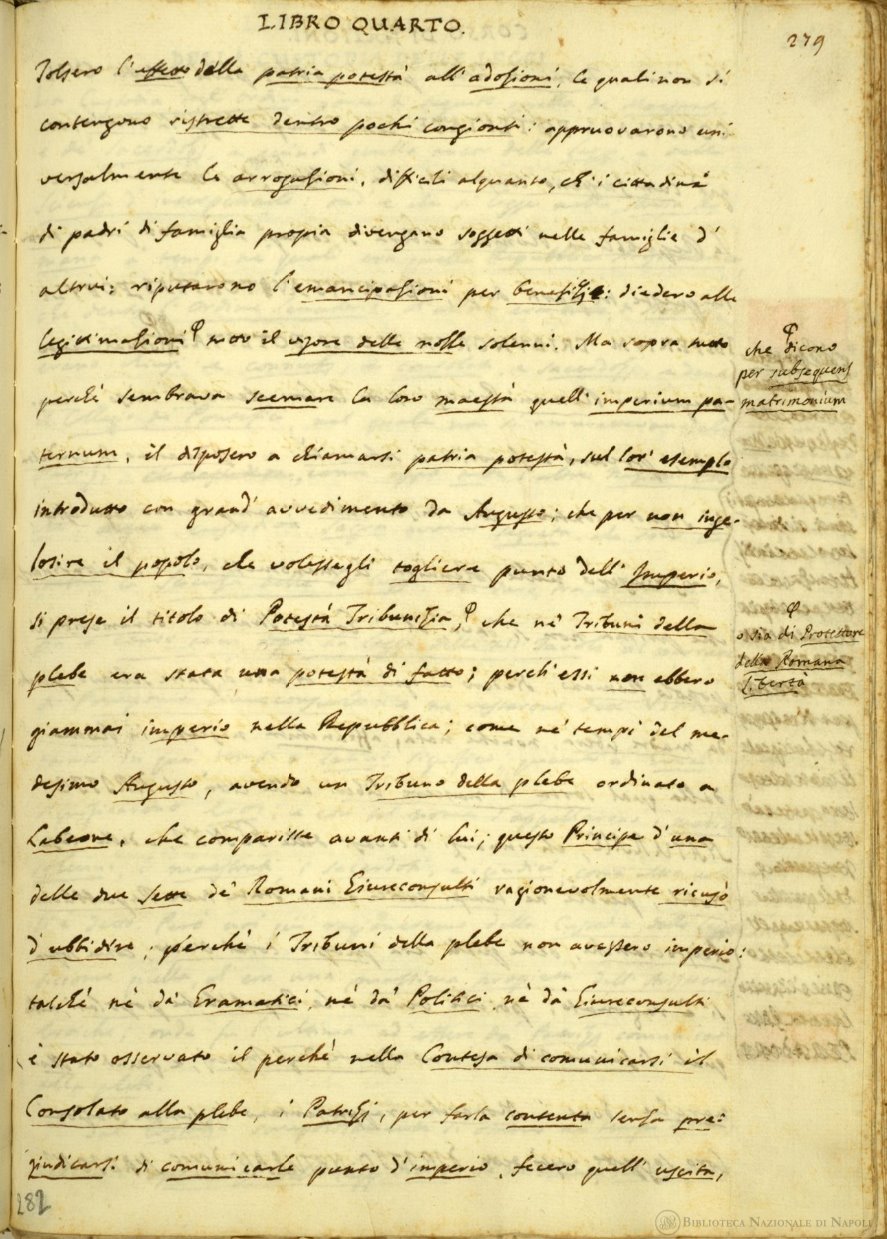 LIBRO QUARTO.
279
Tolsero l'effetto della patria potestà all'adozioni, le quali non si
contengono ristrette dentro pochi congionti: appruovarono uni
versalmente le arrogazioni, difficili alquanto, ch'i cittadini
di padri di famiglia propria divengano soggetti nelle famiglie d'
altrui: riputarono l'emancipazioni per benefizj: diedero alle
legittimazioni φ tutto il vigore delle nozze solenni. Ma sopra tutto
perchè sembrava scemare la loro maestà quell'imperium pa-
ternum, il disposero a chiamarsi patria potestà, sul lor' esemplo
introdutto con grand' avvedimento da Augusto; che per non inge-
losire il popolo, che volessegli togliere punto dell'Imperio,
si prese il titolo di Potestà Tribunizia, φ che ne' Tribuni della
plebe era stata una potestà di fatto; perch'essi non ebbero
giammai imperio nella Repubblica; come ne' tempi del me-
desimo Augusto, avendo un Tribuno della plebe ordinato a
Labeone, che comparisse avanti di lui; questo Principe d'una
delle due Sette de' Romani Giureconsulti ragionevolmente ricusò
d'ubbidire; perchè i Tribuni della plebe non avessero imperio:
talchè nè da' Gramatici, nè da' Politici, nè da' Giureconsulti
è stato osservato il perchè nella Contesa di comunicarsi il
Consolato alla plebe, i Patrizj, per farla contenta senza pre-
giudicarsi di comunicarle punto d'imperio, fecero quell'uscita,
φ
che dicono
per subsequens
matrimonium
φ
o sia di Protettore
della Romana
Libertà
282
BIBLIOTECA NAZIONALE DI NAPOLI